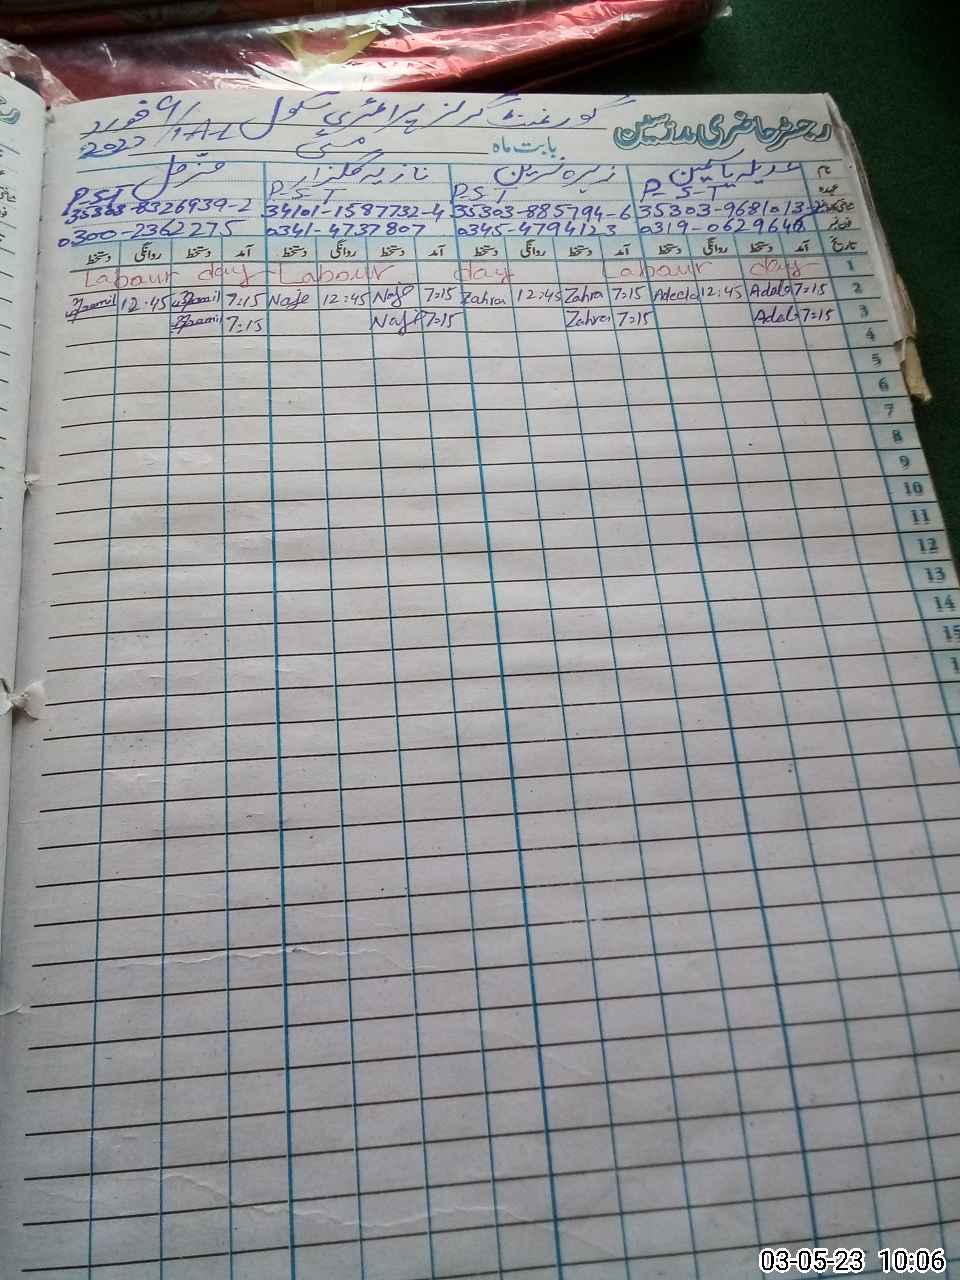 رجسٹر حاضری مدرسین گورنمنٹ گرلز پرائمری سکول
بابت ماہ مئی 2023
نام عدیلہ یاسمین زہرہ نسرین نازیہ گلزار مزمل
عہدہ P-S-T P-S-T P-S-T P.S.T
35303-9681013- 35303-885794-6 34101-1587732-4 35303-8326939-2
0319-0629648 0345-4794123 0341-4737807 0300-2362275
تاریخ آمد دستخط روانگی دستخط آمد دستخط روانگی دستخط آمد دستخط روانگی دستخط آمد دستخط روانگی دستخط
Labour day Labour day Labour day 1
12:45 7:15 12:45 7:15 Zahra 12:45 Zahra 7:15 Adeela 12:45 Adela 7:15 2
7:15 7:15 Zahra 7:15 Adela 7:15 3
4
5
6
7
8
9
10
11
12
13
14
15
03-05-23 10:06